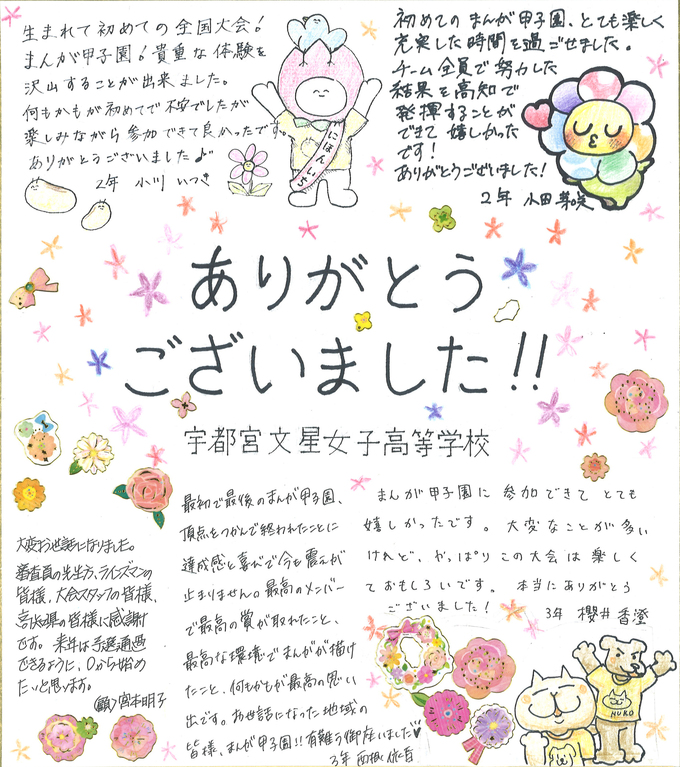 生まれて初めての全国大会!
まんが甲子園!貴重な体験を
沢山することが出来ました。
何もかもが初めてで不安でしたが
楽しみながら参加できて良かったです。
ありがとうございました♪
2年 小川 いつき
にほんいち
初めてのまんが甲子園、とても楽しく
充実した時間を過ごせました。
チーム全員で努力した
結果を高知で
発揮することが
できて嬉しかった
です!
ありがとうございました!
2年 小田 芽咲
ありがとう
ございました!!
宇都宮文星女子高等学校
大変お世話になりました。
審査員の先生方、ラインズマンの
皆様、大会スタッフの皆様、
高知県の皆様に感謝
です。来年は予選通過
できるように、0から始め
たいと思います。
(顧)宮本明子
最初で最後のまんが甲子園、
頂点をつかんで終われたことに
達成感と喜びで今も震えが
止まりません。最高のメンバー
で最高の賞が取れたこと、
最高な環境でまんがが描け
たこと、何もかもが最高の思い
出です。お世話になった地域の
皆様、まんが甲子園!!有難う御座いました♥
3年 西根
まんが甲子園に参加できてとても
嬉しかったです。大変なことが多い
けれど、やっぱりこの大会は楽しく
ておもしろいです。本当にありがとう
ございました!
3年 櫻井 香澄
HUKO